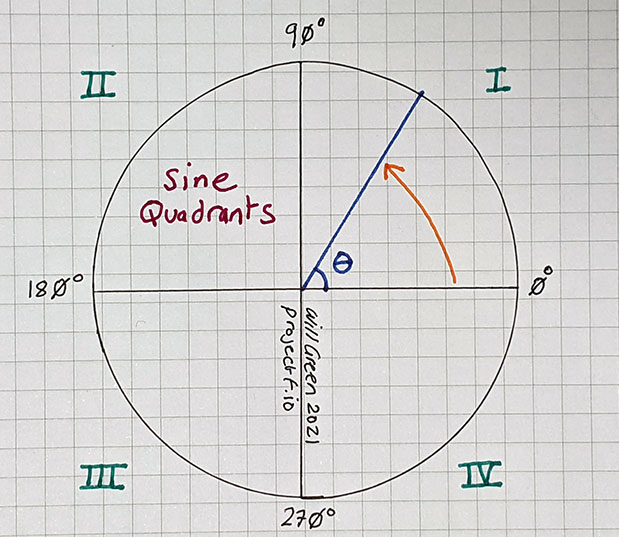 90°
II
I
Sine
Quadrants
θ
180°
0°
Will Green 2021
projectf.io
III
IV
270°